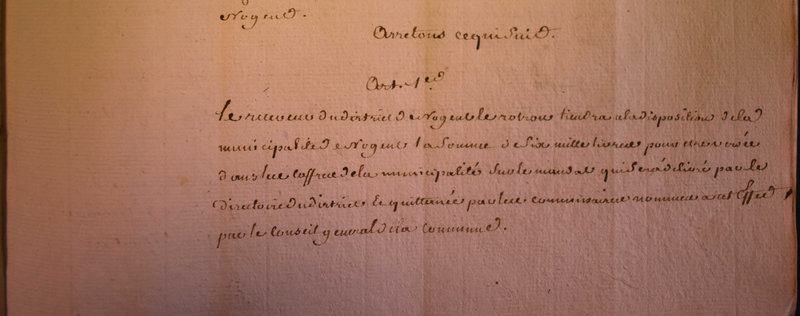 Nogent.
Arretons ce qui suit.
Art. 1er
Le receveur du district de Nogent le rotrou tiendra a la disposition de la
municipalité de Nogent la somme de Six mille livres pour etre versée
dans les coffres de la municipalité sur le mandat qui sera délivré par le
directoire du district & quittancée par les commissaires nommés a cet Effet
par le Conseil general de la Commune.